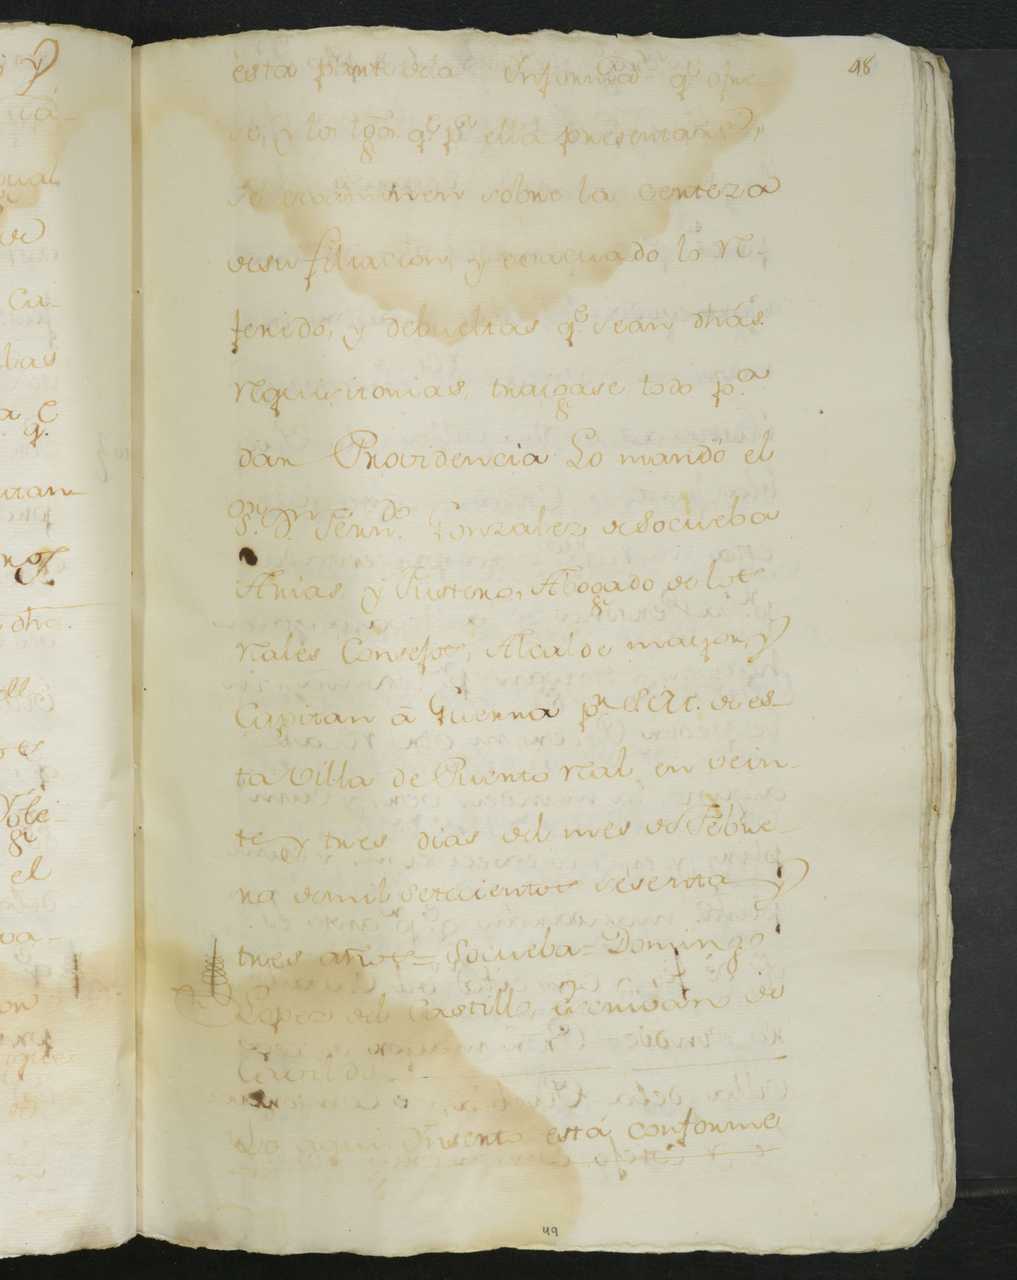 98
esta parte dela Informon. qe. ofre-
se, y los tgos. qe. pa. ella presentare,
se examinen sobre la serteza
desu filiacion, y evacuado lo Re-
ferido, y debueltas qe. sean dhas.
Requisitorias, traigase todo pa.
dar Providencia Lo mandó el
Sor. Dn. Ferndo. Gonzalez de Socueba
Arias y Rustero, Abogado de los
Rales Consejos, Alcalde mayor, y
Capitan à Guerra pr. S.M. de es-
ta Villa de Puerto Real, en vein-
te y tres dias del mes de Febre-
ro de mil setecientos sesenta y
tres años = Socueba = Domingo
Lopez del Castillo, Escrivano de
Cavildo
Lo aqui Inserto está conforme
49